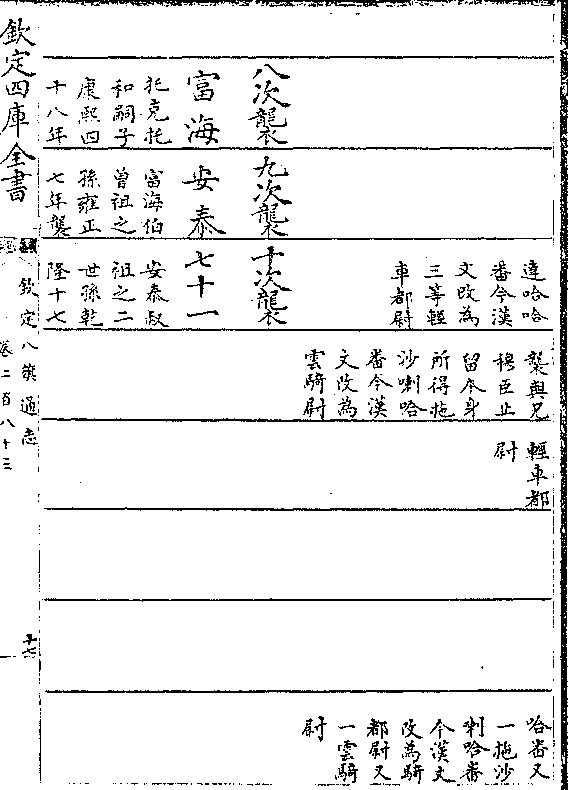 達哈哈
番今漢
文改為
三等輕
車都尉
襲與兄
穆臣止
留本身
所得拖
沙喇哈
番今漢
文改為
雲騎尉
輕車都
尉
哈番又
一拖沙
喇哈番
今漢文
改為騎
都尉又
一雲騎
尉
八次襲
富海
托克托
和嗣子
康熙四
十八年
九次襲
安泰
富海伯
曾祖之
孫雍正
七年襲
十次襲
七十一
安泰叔
祖之二
世孫乾
隆十七
欽定四庫全書
欽定八旗通志
卷二百八十三
十七